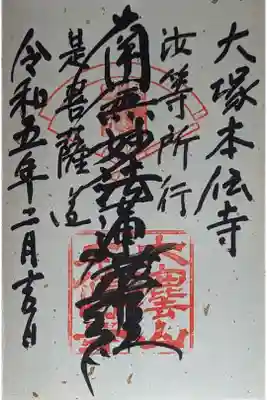 大塚本伝寺
汝等所行
南無妙法蓮華経
是菩薩道
令和五年二月吉日